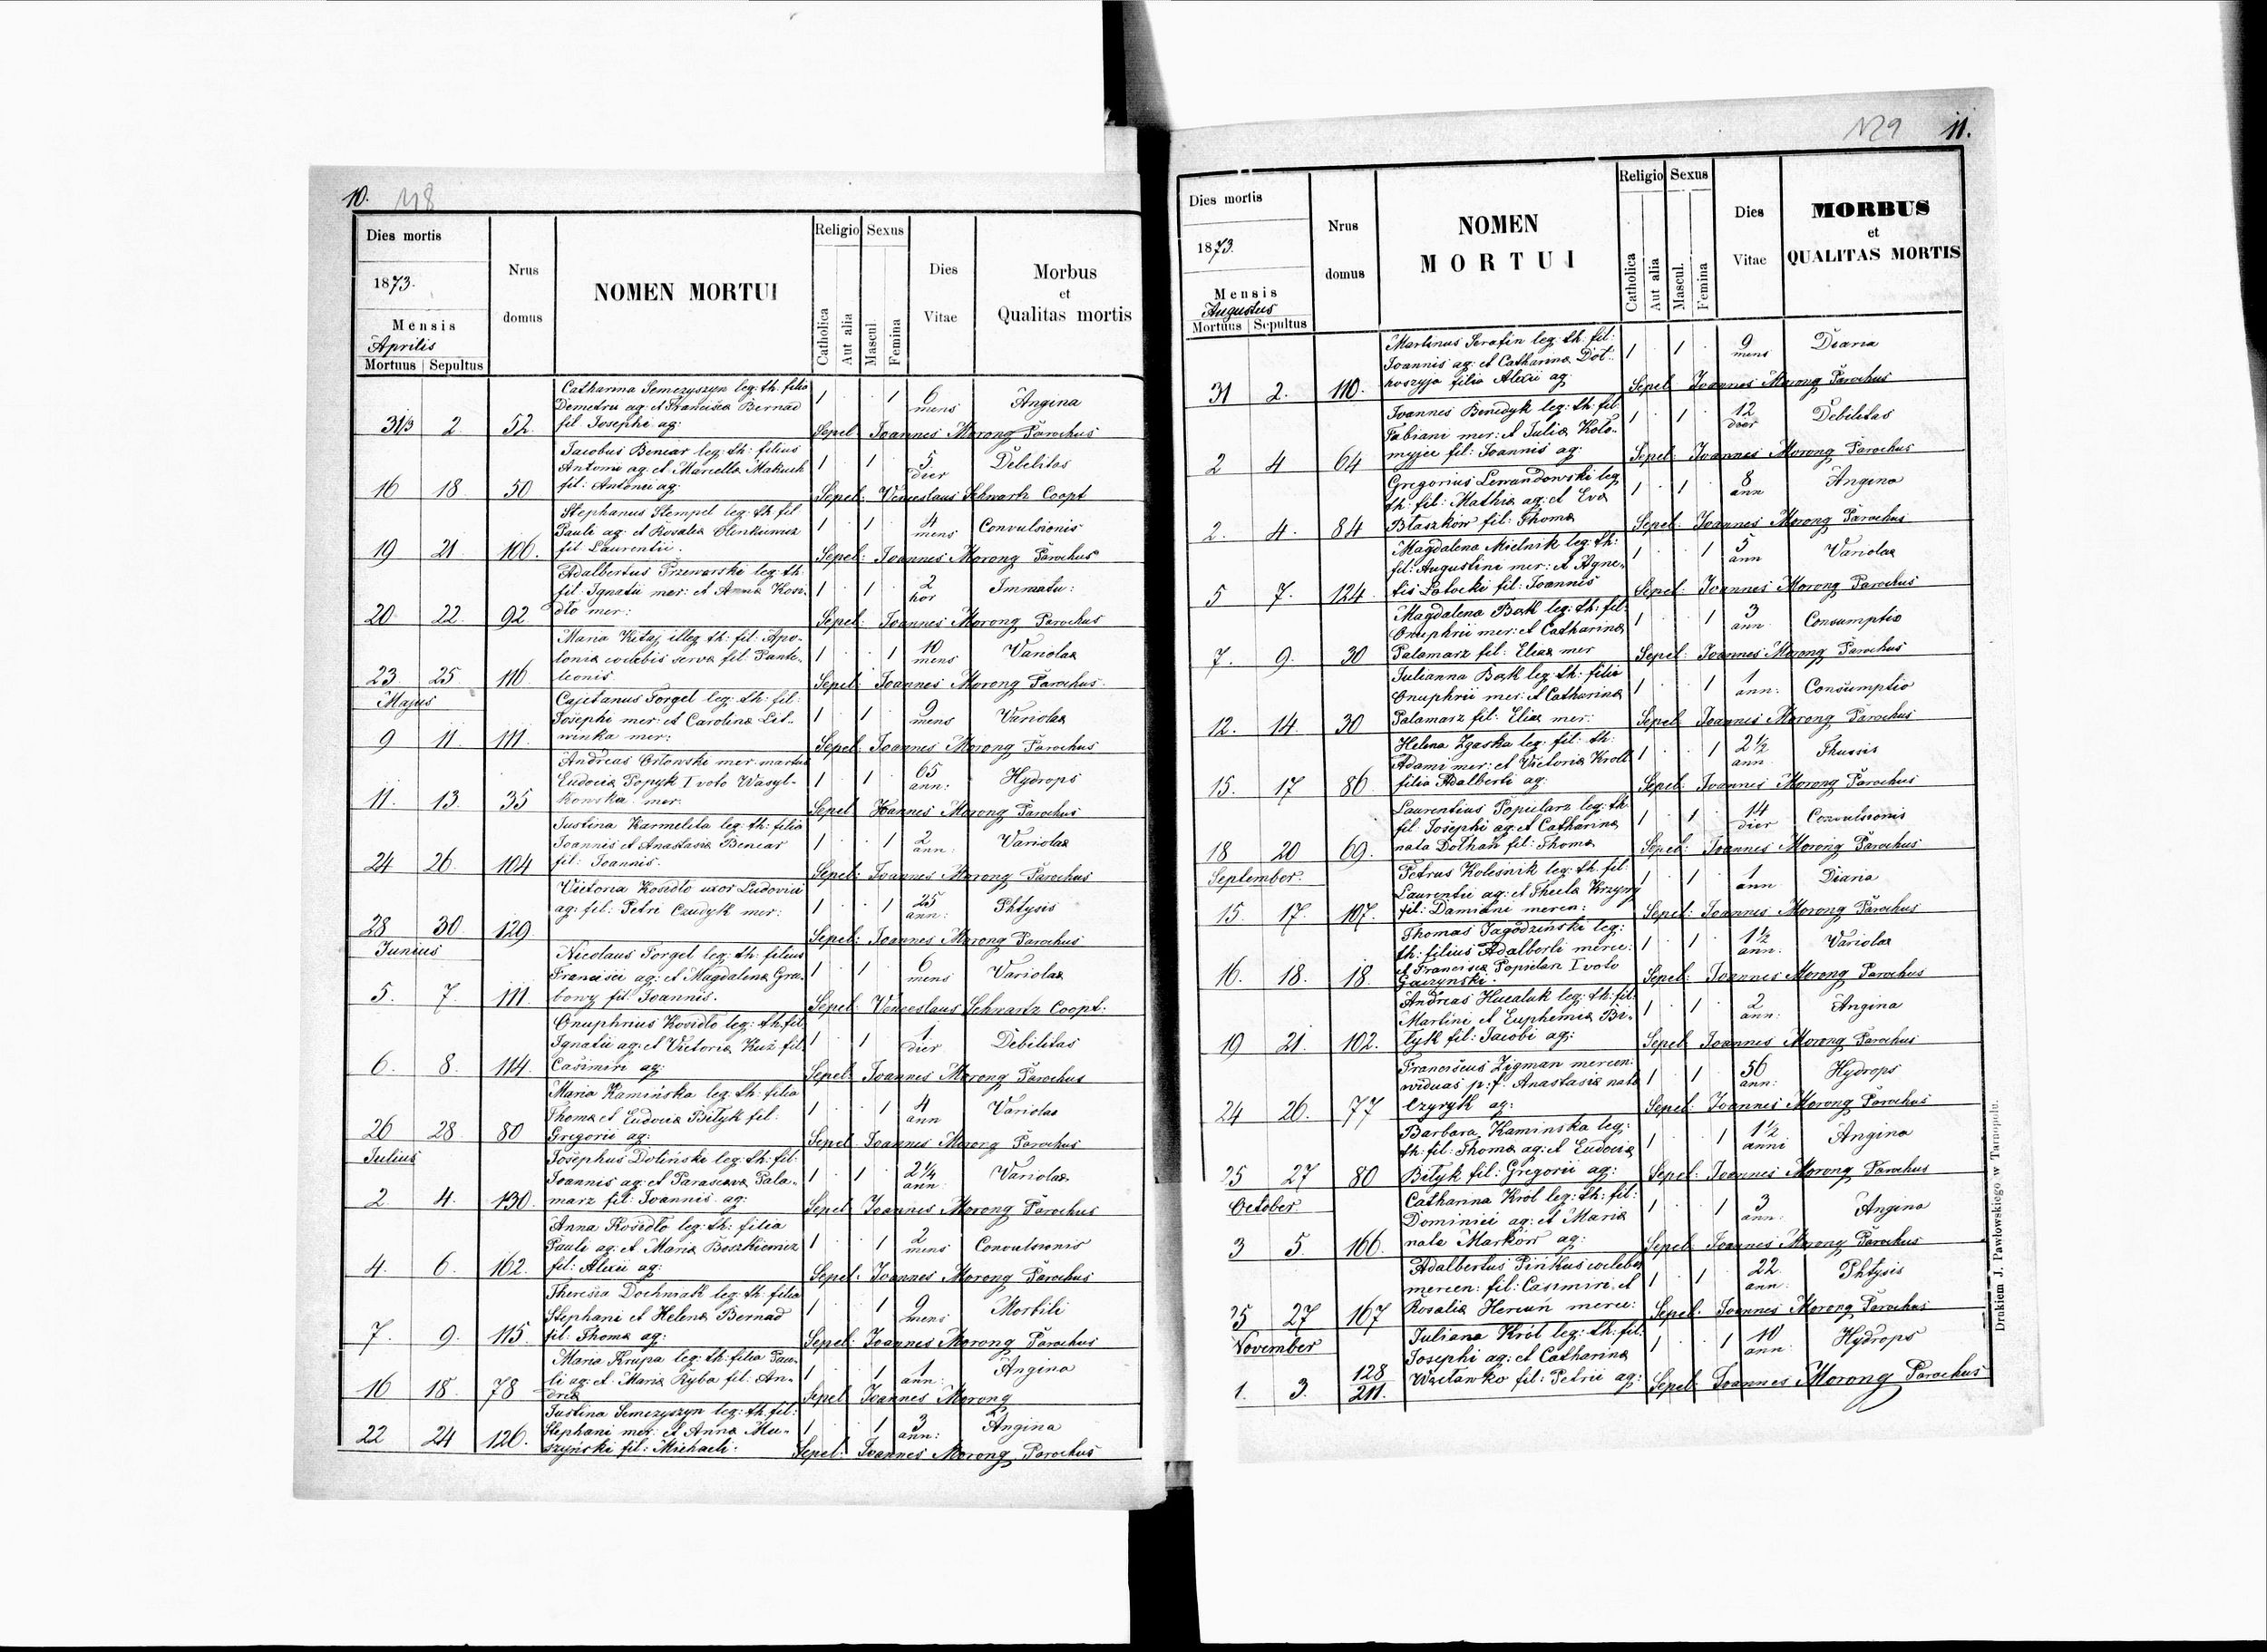 10. 118
Dies mortis
1873.
Mensis
Aprilis
Mortuus Sepultus
Nrus
domus
NOMEN MORTUI
Religio Sexus
Catholica
Aut alia
Mascul
Femina
Dies
Vitae
Morbus
et
Qualitas mortis
Catharina Semczyszyn leg: th. filia
Demetrii ag: et Francisca Bernad 1 1 6 mens Angina
31/3 2 52. fil. Josephi ag: Sepel Joannes Morong Parochus
Jacobus Benear leg: th: filius
Antonii ag: et Marcella Makuch 1 1 5 dier Debilitas
16 18 50 fil: Antonii ag: Sepel: Venceslaus Schwartz Coopt
Stephanus Stempel leg: th. fil
Pauli ag: et Rosalia Olenkiewicz 1 1 4 mens Convulsionis
19 21 106. fil. Laurentii. Sepel: Joannes Morong Parochus
Adalbertus Przeworski leg: th:
fil. Ignatii mer: et Anna Kosi- 1 1 2 hor Immatu:
20 22. 92 dło mer: Sepel: Joannes Morong Parochus
Maria Kitaj illeg th: fil: Apo-
lonia coelebis serva fil: Pante- 1 1 10 mens Variolae
23 25 116 leonis. Sepel: Joannes Morong Parochus.
Majus
Cajetanus Forgel leg: th: fil:
Josephi mer: et Carolina Lit- 1 1 9 mens Variolae
9 11 111. winka mer: Sepel: Joannes Morong Parochus
Andreas Orłowski mer. martus
Eudocia Popyk I voto Wasyl- 1 1 65 ann: Hydrops
11. 13. 35 kowska mer: Sepel Joannes Morong Parochus
Justina Karmelita leg: th: filia
Joannis et Anastasia Benear 1 1 2 ann: Variolae
24 26. 104 fil: Joannis. Sepel: Joannes Morong Parochus
Victoria Kosidło uxor Ludovici
ag: fil: Petri Czudyk mer: 1 1 25 ann: Phtysis
28 30. 129 Sepel: Joannes Morong Parochus
Junius
Nicolaus Forgel leg: th: filius
Francisci ag: et Magdalena Gra- 1 1 6 mens Variolae
5. 7. 111 bowy fil: Joannis. Sepel: Venceslaus Schwartz Coopt.
Onuphrius Kosidło leg: th. fil.
Ignatii ag: et Victoria Kuź fil. 1 1 1 dier Debilitas
6. 8. 114. Casimiri ag: Sepel: Joannes Morong Parochus
Maria Kamińska leg: th: filia
Thoma et Eudocia Biłyk fil: 1 1 4 ann Variolae
26 28 80 Gregorii ag: Sepel Joannes Morong Parochus
Julius
Josephus Doliński leg: th: fil:
Joannis ag: et Parasceva Pala- 1 1 2¼ ann Variolae.
2 4. 130. marz fil: Joannis ag: Sepel Joannes Morong Parochus
Anna Kosidło leg: th: filia
Pauli ag: et Maria Boszkiewicz 1 1 2 mens Convulsionis
4. 6. 162. fil: Alexii ag: Sepel: Joannes Morong Parochus
Theresia Dochniak leg: th: filia
Stephani et Helena Bernad 1 1 9 mens Morbili
7. 9. 115. fil: Thoma ag: Sepel: Joannes Morong Parochus
Maria Krupa leg: th: filia Pau-
li ag: et Maria Ryba fil: An- 1 1 1 ann: Angina
16 18. 78 drea Sepel Joannes Morong
Justina Semczyszyn leg: th. fil:
Stephani mer: et Anna Mu- 1 1 3 ann: Angina
22 24 126. szynski fil: Michaeli. Sepel: Joannes Morong Parochus
129 11.
Dies mortis
1873.
Mensis
Augustus
Mortuus Sepultus
Nrus
domus
NOMEN
MORTUI
Religio Sexus
Catholica
Aut alia
Mascul.
Femina
Dies
Vitae
MORBUS
et
QUALITAS MORTIS
Martinus Serafin leg: th. fil:
Joannis ag: et Catharina Dot- 1 1 9 mens Diaria
31 2. 110. koszyja filia Alexii ag: Sepel Joannes Morong Parochus
Joannes Benedyk leg: th: fil
Fabiani mer: et Julia Koło- 1 1 12 dier Debilitas
2 4 64 myjec fil: Joannis ag: Sepel: Joannes Morong Parochus
Gregorius Lewandowski leg
th: fil: Mathia ag: et Eva 1 1 8 ann Angina
2. 4. 84 Błaszków fil: Thoma Sepel: Joannes Morong Parochus
Magdalena Mielnik leg: th:
fil: Augustini mer: et Agne- 1 1 5 ann Variolae
5 7. 124. tis Potocki fil: Joannis Sepel: Joannes Morong Parochus
Magdalena Bąk leg: th: fil:
Onuphrii mer: et Catharina 1 1 3 ann Consumptio
7. 9. 30 Palamarz fil: Eliae mer Sepel: Joannes Morong Parochus
Julianna Bąk leg: th: filia
Onuphrii mer: et Catharina 1 1 1 ann: Consumptio
12. 14. 30 Palamarz fil: Eliae mer: Sepel: Joannes Morong Parochus
Helena Zgaska leg: fil: th:
Adami mer: et Victoria Kroll 1 1 2½ ann Thussis
15. 17 86. filia Adalberti ag: Sepel: Joannes Morong Parochus
Laurentius Popielarz leg: th.
fil. Josephi ag: et Catharina 1 1 14 dier Convulsionis
18 20 69. nata Dothan fil: Thoma Sepel: Joannes Morong Parochus
September.
Petrus Kolesnik leg: th: fil:
Laurentii ag: et Thecla Krzywy 1 1 1 ann Diaria
15. 17. 107. fil: Damiani mercen: Sepel: Joannes Morong Parochus
Thomas Jagodziński leg:
th: filius Adalberti merce: 1 1 1½ ann. Variolae
et Francisca Popielarz I voto
16. 18. 18. Gaczynski. Sepel: Joannes Morong Parochus
Andreas Hucaluk leg: th: fil:
Martini et Euphemia Bi- 1 1 2 ann: Angina
19 21. 102. łyk fil: Jacobi ag: Sepel: Joannes Morong Parochus
Franciscus Zigman mercen:
viduas p: f. Anastasia nata 1 1 56 ann: Hydrops
24 26. 77 Czyryk ag: Sepel: Joannes Morong Parochus
Barbara Kaminska leg:
th: fil: Thoma ag: et Eudocia 1 1 1½ anni Angina
25 27 80 Biłyk fil: Gregorii ag: Sepel: Joannes Morong Parochus
October
Catharina Król leg: th: fil:
Dominici ag: et Maria 1 1 3 ann: Angina
3 5. 166. nata Markow ag: Sepel: Joannes Morong Parochus
Adalbertus Pinkus coelebs
mercen: fil: Casimiri et 1 1 22 ann: Phtysis
25 27 167 Rosalia Hercuń merce: Sepel: Joannes Morong Parochus
November
Juliana Król leg: th: fil:
Josephi ag: et Catharina 1 1 10 ann Hydrops
1. 3. 128/211. fil: Petrii ag: Sepel: Joannes Morong Parochus
Drukiem J. Pawłowskiego w Tarnopolu.